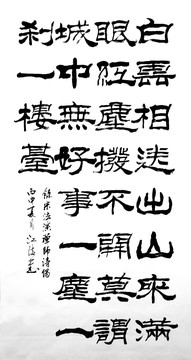 白雲相送出山來滿
眼紅塵撥不開莫謂
城中無好事一塵一
刹一樓臺
錄宋法演禪師詩偈
丙申夏月江